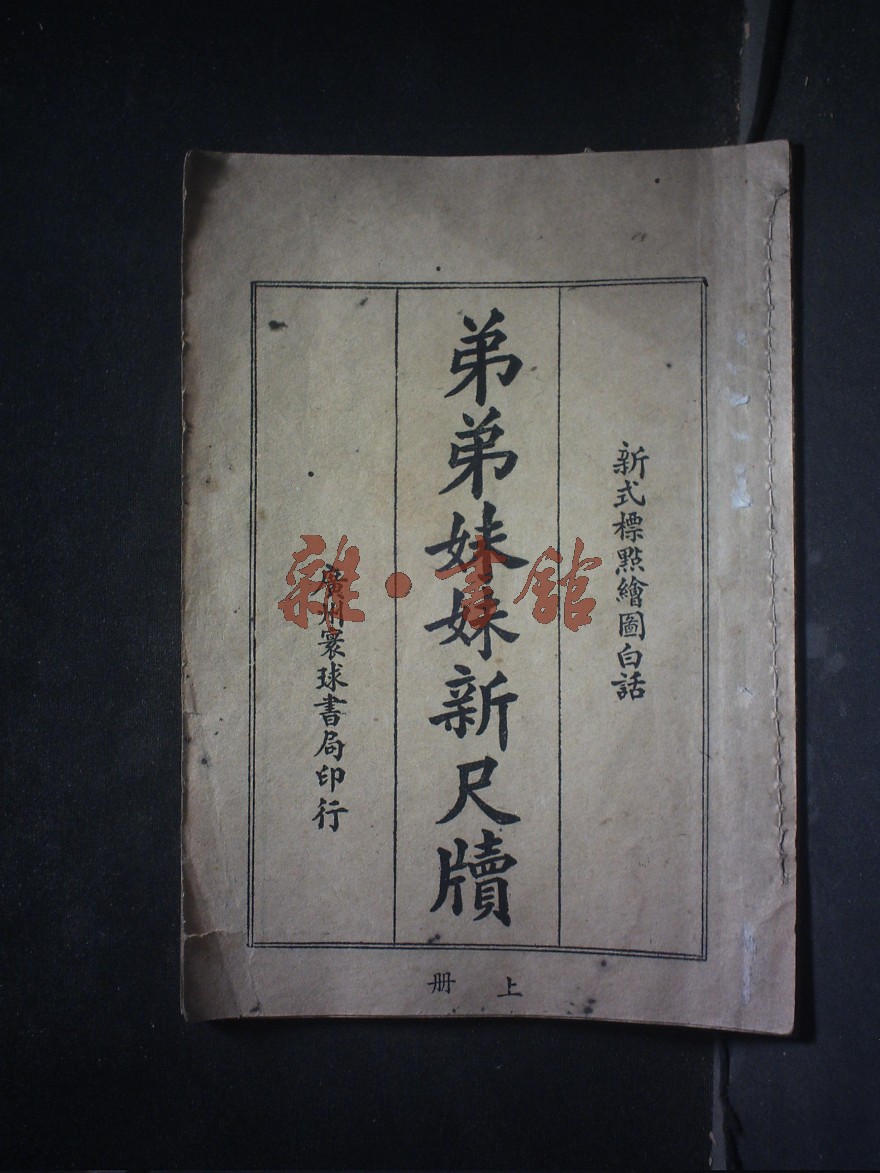 新式標點繪圖白話
弟弟妹妹新尺牘
廣州寰球書局印行
上册
雜·書館